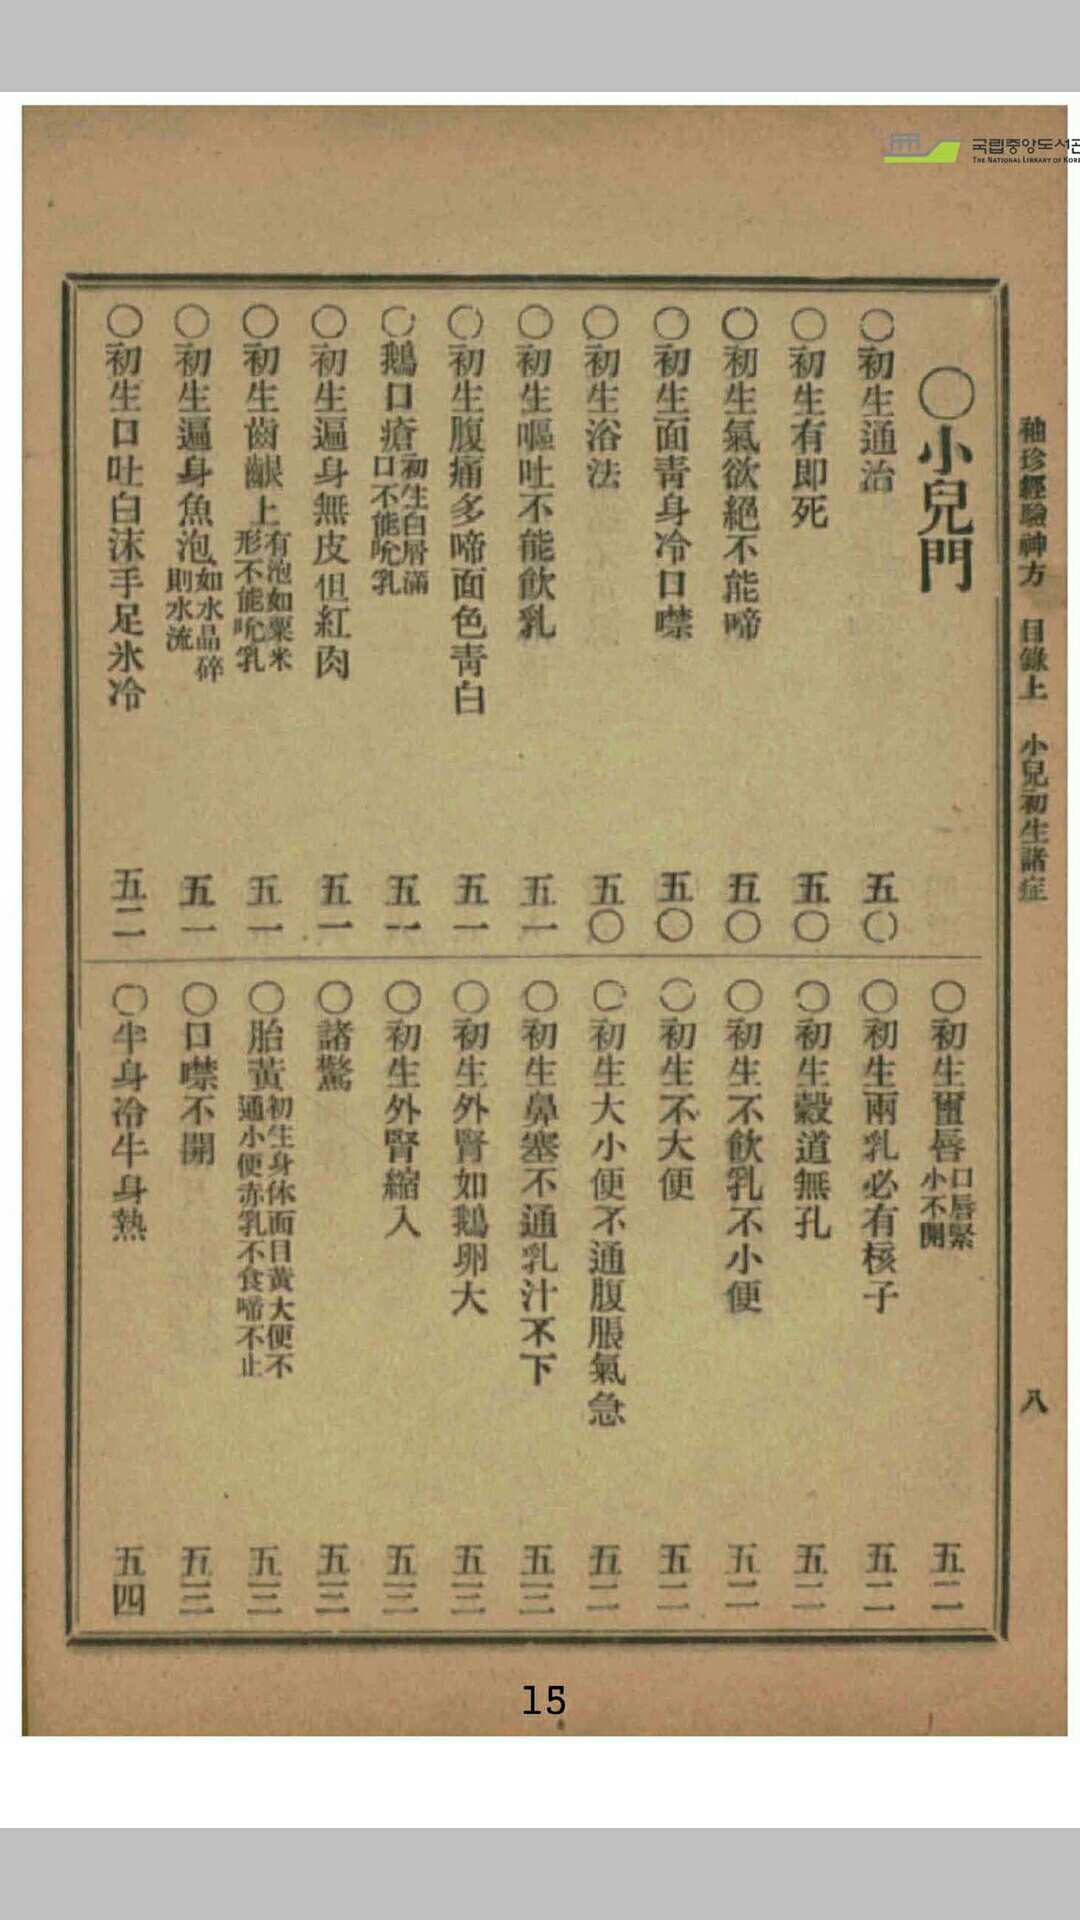 국립중앙도서관
THE NATIONAL LIBRARY OF KOREA
袖珍經驗神方 目錄上 小兒初生諸症 八
〇小兒門
〇初生通治 五〇
〇初生有即死 五〇
〇初生氣欲絕不能啼 五〇
〇初生面靑身冷口噤 五〇
〇初生浴法 五〇
〇初生嘔吐不能飮乳 五一
〇初生腹痛多啼面色靑白 五一
〇鵝口瘡 初生白屑滿口不能吮乳 五一
〇初生遍身無皮但紅肉 五一
〇初生齒齦上 有泡如粟米形不能吮乳 五一
〇初生遍身魚泡 如水晶碎則水流 五一
〇初生口吐白沫手足氷冷 五二
〇初生䘌唇 口唇緊小不開 五二
〇初生兩乳必有核子 五二
〇初生穀道無孔 五二
〇初生不飮乳不小便 五二
〇初生不大便 五二
〇初生大小便不通腹脹氣急 五二
〇初生鼻塞不通乳汁不下 五三
〇初生外腎如鵝卵大 五三
〇初生外腎縮入 五三
〇諸驚 五三
〇胎黃 初生身体面目黃大便不通小便赤乳不食啼不止 五三
〇口噤不開 五三
〇半身冷半身熱 五四
15